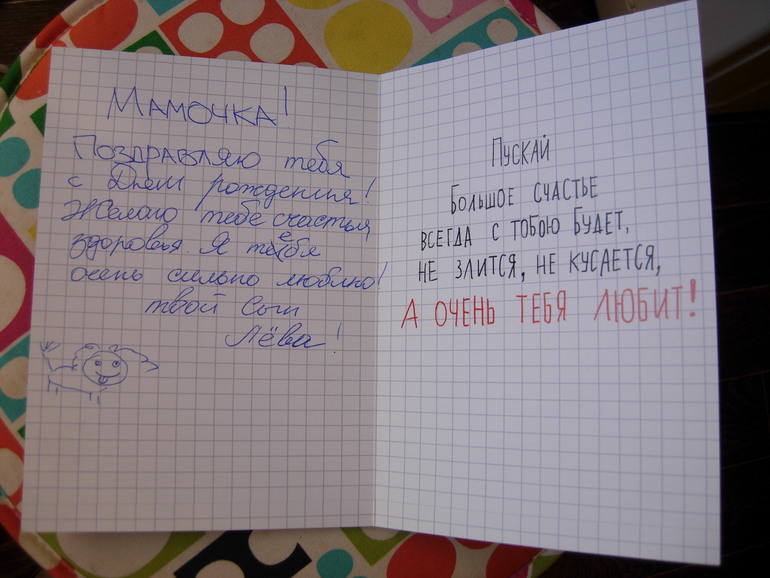 Мамочка!
Поздравляю тебя
с Днем рождения!
Желаю тебе счастья,
здоровья. Я тебя
очень сильно люблю!
твой сын
Лёва!
Пускай
Большое счастье
всегда с тобою будет,
не злится, не кусается,
А ОЧЕНЬ ТЕБЯ ЛЮБИТ!